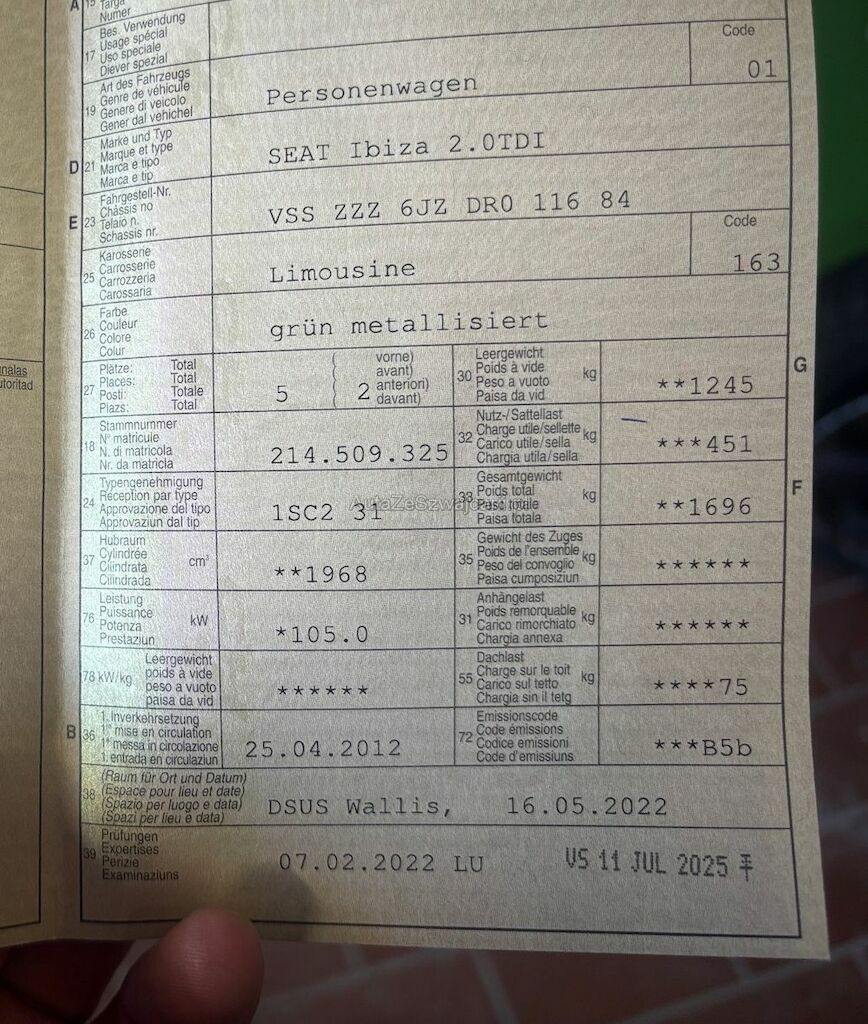 A 15 Targa
Numer
17 Bes. Verwendung
Usage spécial
Uso speciale
Diever spezial
Code
19 Art des Fahrzeugs
Genre de véhicule
Genere di veicolo
Gener dal vehichel
Personenwagen
01
D 21 Marke und Typ
Marque et type
Marca e tipo
Marca e tip
SEAT Ibiza 2.0TDI
E 23 Fahrgestell-Nr.
Châssis no
Telaio n.
Schassis nr.
VSS ZZZ 6JZ DR0 116 84
Code
25 Karosserie
Carrosserie
Carrozzeria
Carossaria
Limousine
163
26 Farbe
Couleur
Colore
Colur
grün metallisiert
27 Plätze: Total
Places: Total
Posti: Totale
Plazs: Total
5
( vorne)
avant)
2 anteriori)
( davant)
30 Leergewicht
Poids à vide
Peso a vuoto
Paisa da vid
kg
**1245
G
18 Stammnummer
N° matricule
N. di matricola
Nr. da matricla
214.509.325
32 Nutz-/Sattellast
Charge utile/sellette
Carico utile/sella
Chargia utila/sella
kg
***451
24 Typengenehmigung
Réception par type
Approvazione del tipo
Approvaziun dal tip
1SC2 31
33 Gesamtgewicht
Poids total
Peso totale
Paisa totala
kg
**1696
F
37 Hubraum
Cylindrée
Cilindrata
Cilindrada
cm³
**1968
35 Gewicht des Zuges
Poids de l'ensemble
Peso del convoglio
Paisa cumposiziun
kg
******
76 Leistung
Puissance
Potenza
Prestaziun
kW
*105.0
31 Anhängelast
Poids remorquable
Carico rimorchiato
Chargia annexa
kg
******
78 kW/kg
Leergewicht
poids à vide
peso a vuoto
paisa da vid
******
55 Dachlast
Charge sur le toit
Carico sul tetto
Chargia sin il tetg
kg
****75
B 36 1. Inverkehrsetzung
1re mise en circulation
1a messa in circolazione
1. entrada en circulaziun
25.04.2012
72 Emissionscode
Code émissions
Codice emissioni
Code d'emissiuns
***B5b
38 (Raum für Ort und Datum)
(Espace pour lieu et date)
(Spazio per luogo e data)
(Spazi per lieu e data)
DSUS Wallis, 16.05.2022
39 Prüfungen
Expertises
Perizie
Examinaziuns
07.02.2022 LU
VS 11 JUL 2025